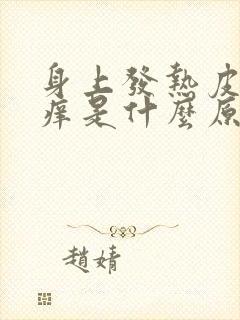 身上發熱皮
痒是什麼原
趙婧